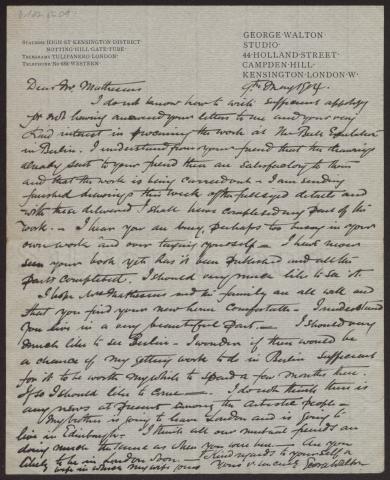 STATIONS HIGH-ST-KENSINGTON-DISTRICT
NOTTING-HILL-GATE-TUBE-
TELEGRAMS TULIPANERO-LONDON-
TELEPHONE No 636 WESTERN
GEORGE-WALTON
STUDIO-
44-HOLLAND-STREET-
CAMPDEN-HILL-
KENSINGTON-LONDON-W-
9th May 1904.
Dear Mr Mathesius
I do not know how to write sufficient apology
for not having answered your letters to me and your very
kind interest in procuring the work at the
in Berlin. I understand from your friend that the drawings
already sent to your friend then are satisfactory to them
and that the work is being carried out - I am sending
finished drawings this week after full sized details and
with these delivered I shall have completed my part of the
work. - I hear you are busy, perhaps too busy in your
own work and over trying yourself - I have never
seen your book yet has it been published and all the
parts completed. I should very much like to see it.
I hope Mrs Mathesius and the family are all well and
that you find your new home comfortable - I understand
you live in a very beautiful part. - I should very
much like to see Berlin - I wonder if there would be
a chance of my getting work to do in Berlin sufficient
for it to be worth my while to spend a few months there.
If so I should like to come - I do not think there is
any news at present among the artistic people -
My brother is going to leave London and is going to
live in Edinburgh. I think all our mutual friends are
doing much the same as when you were here - Are you
likely to be in London soon - Kind regards to yourself &
wife in which my wife joins Yours sincerely George Walton